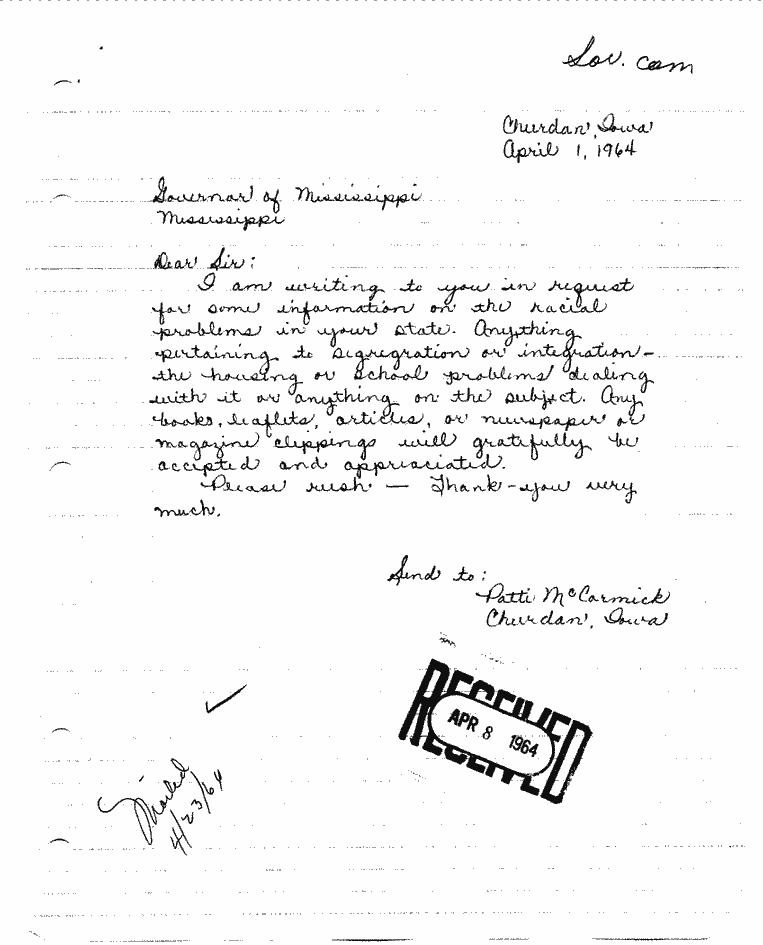 Sov. com
Churdan, Iowa
April 1, 1964
Governor of Mississippi
Mississippi
Dear Sir:
I am writing to you in request
for some information on the racial
problems in your state. Anything
pertaining to segregration or integration-
the housing or school problems dealing
with it or anything on the subject. Any
books, leaflets, articles, or newspaper or
magazine clippings will gratefully be
accepted and appreaciated.
Please rush — Thank-you very
much.
Send to:
Patti McCormick
Churdan, Iowa
RECEIVED
APR 8 1964
RECEIVED
Mailed
4/23/64